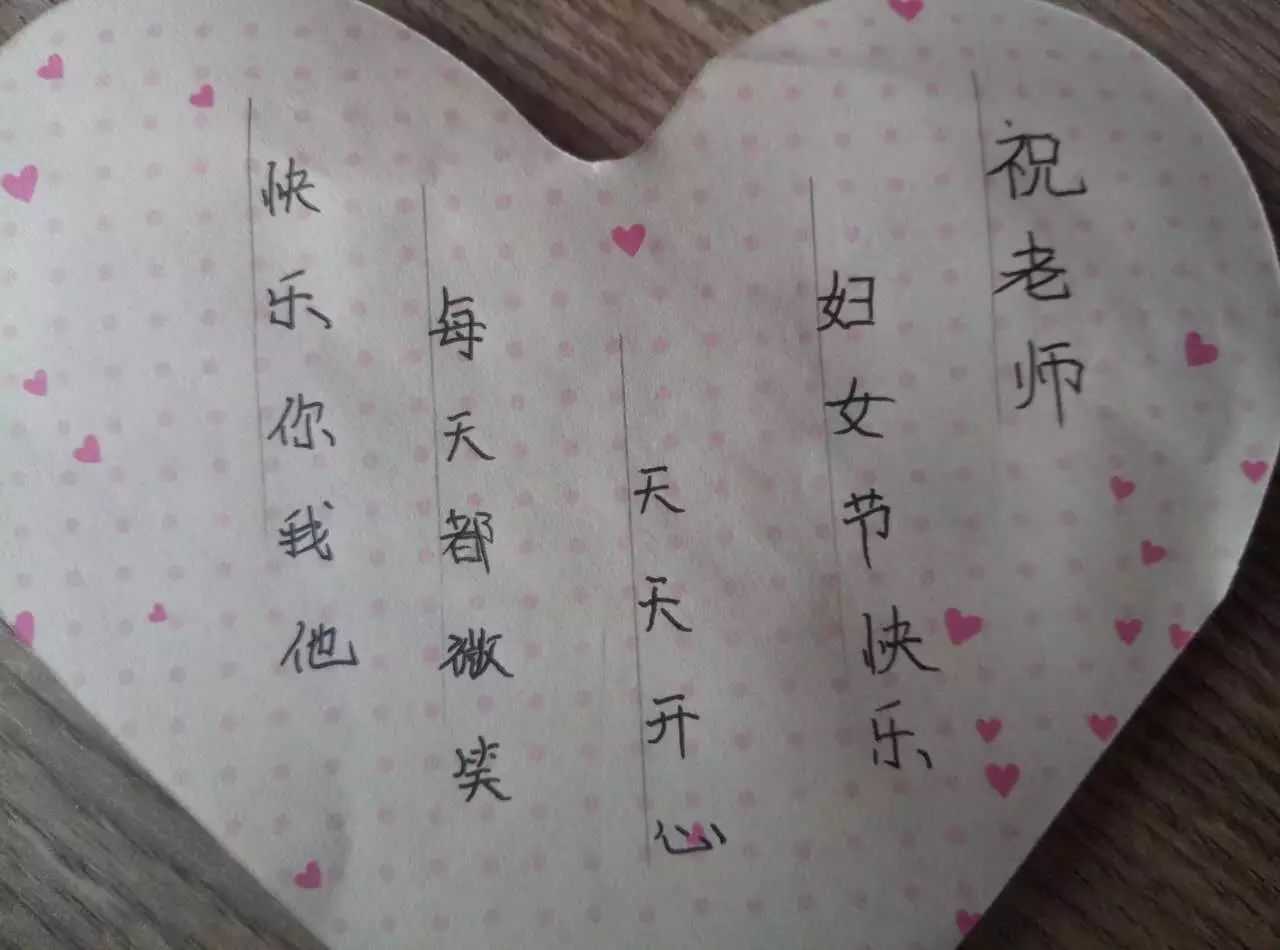 祝老师
妇女节快乐
天天开心
每天都微笑
快乐你我他